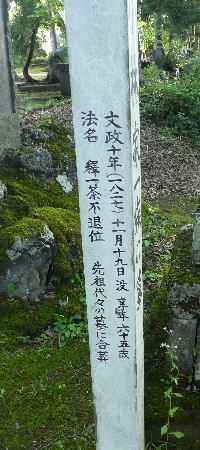 文政十年(一八二七)十一月十九日没 享年 六十五歳
法名 釋一茶不退位 先祖代々の墓に合葬